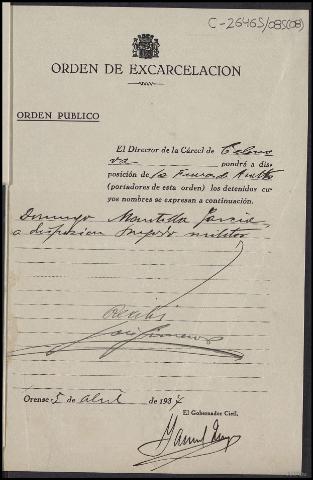 C-26465/085(08)
ORDEN DE EXCARCELACION
ORDEN PUBLICO
El Director de la Cárcel de Celano
va- pondrá a dis-
posición de la
(portadores de esta orden) los detenidos cu-
yos nombres se expresan a continuación.
Domingo Mantilla Garcia
a disposicion militar
Recibi
Orense 5 de abril de 1937
El Gobernador Civil,
Manuel